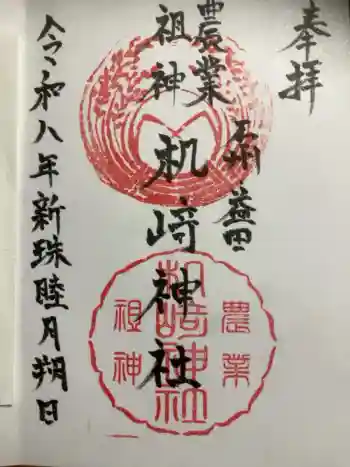 奉拝
農業
祖神
石州 益田
机﨑神社
令和八年新珠睦月朔日
農業
机﨑神社
祖神